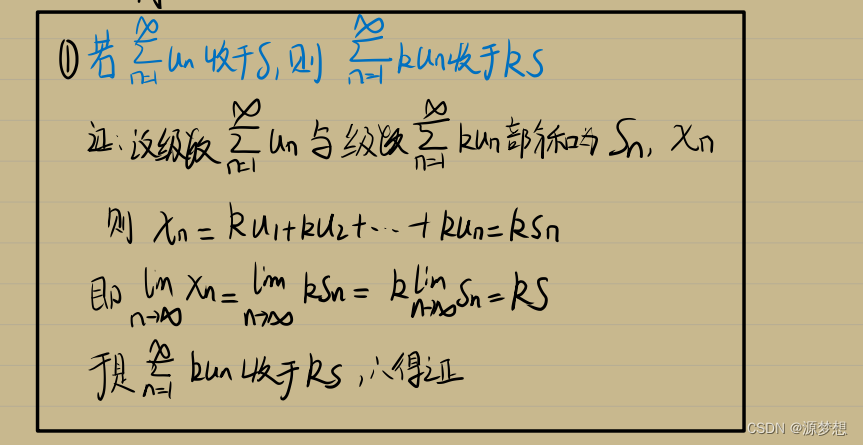 ① 若 ∑_{n=1}^{∞} un 收于S, 则 ∑_{n=1}^{∞} kun收于kS
证: 设级数 ∑_{n=1}^{∞} un 与 级数 ∑_{n=1}^{∞} kun 部分和为 Sn, xn
则 xn = ku1+ku2+…+kun=ksn
即 lim_{n→∞} xn = lim_{n→∞} kSn = k lim_{n→∞} Sn = kS
于是 ∑_{n=1}^{∞} kun 收于 kS, ∴得证
CSDN @源梦想